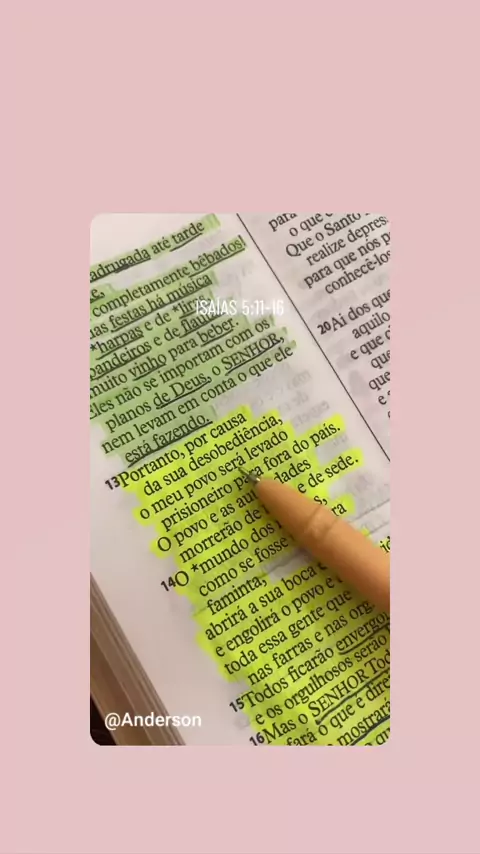 adrugada até tarde
completamente bêbados!
nas festas há música
*harpas e de *liras,
pandeiros e de flautas
muito vinho para beber.
eles não se importam com os
planos de Deus, o SENHOR,
nem levam em conta o que ele
está fazendo.
13Portanto, por causa
da sua desobediência,
o meu povo será levado
prisioneiro para fora do país.
O povo e as
morrerão de e de sede.
14O *mundo dos
como se fosse
faminta,
abrirá a sua boca
e engolirá o povo e
toda essa gente que
nas farras e nas
15Todos ficarão
e os orgulhosos serão
16Mas o SENHOR
fará o que é
mostrará
para
o que
Que o Santo
realize depres
para que nós p
conhecê-los
20Ai dos que
aquilo
e que
que
e
ISAÍAS 5:11-16
@Anderson